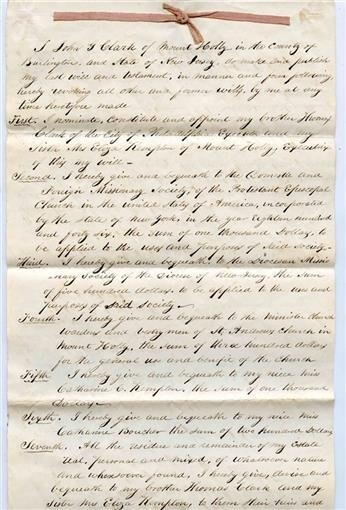 I John T Clark of Mount Holly in the County of
Burlington, and State of New Jersey, do make and publish
my last will and testament, in manner and form following,
hereby revoking all other and former wills, by me at any
time heretofore made
First. I nominate, constitute and appoint my brother Thomas
Clark of the City of Philadelphia Executor and my
Sister Mrs Eliza Kempton of Mount Holly, Executrix
of this my will —
Second. I hereby give and bequeath to the Domestic and
Foreign Missionary Society, of the Protestant Episcopal
Church in the United States of America, incorporated
by the State of New York, in the year Eighteen hundred
and forty six, the sum of one thousand Dollars, to
be applied to the uses and purposes of said Society.
Third. I hereby give and bequeath to the Diocesan Missio
nary Society of the Diocese of New Jersey, the sum
of five hundred dollars, to be applied to the uses and
purposes of Said Society —
Fourth. I hereby give and bequeath to the Minister Church
Wardens and Vestry men of St Andrews Church in
Mount Holly, the sum of three hundred dollars
for the general use and benefit of the Church
Fifth I hereby give and bequeath to my niece Miss
Catharine C. Kempton, the sum of one thousand
Dollars —
Sixth. I hereby give and bequeath to my niece Miss
Catharine Boucher the sum of two hundred Dollars
Seventh. All the residue and remainder of my estate
real, personal and mixed, of whatsoever nature
and wheresoever found, I hereby give, devise and
bequeath to my brother Thomas Clark and my
Sister Mrs Eliza Kempton, to them their heirs and